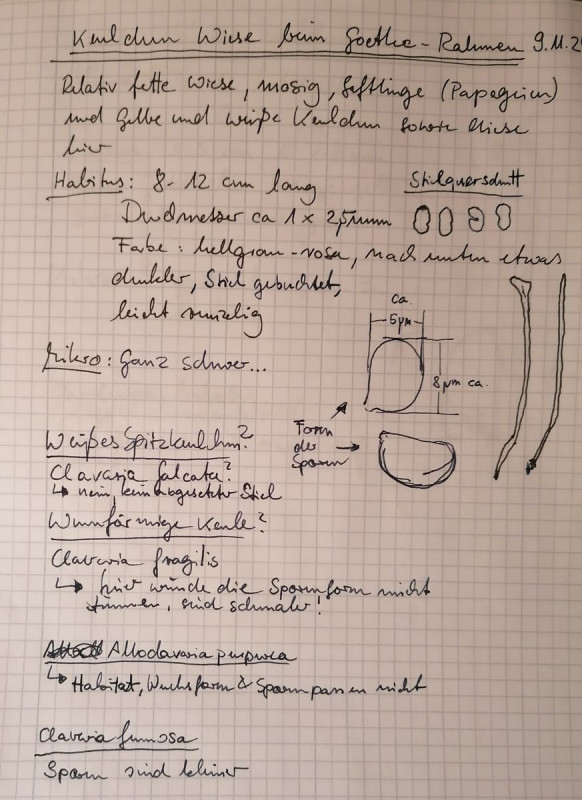 Keulchen Wiese beim Goethe-Rahmen 9.11.2
Relativ fette Wiese, moosig, Saftlinge (Papageien)
und Gelbe und weiße Keulchen sowie diese
hier
Habitus: 8-12 cm lang
Stielquerschnitt
Durchmesser ca 1 x 2,5mm
Farbe: hellgrau-rosa, nach unten etwas
dunkler, Stiel gebuchtet,
leicht runzelig
ca.
5µm
Mikro: Ganz schwer...
8µm ca.
Form
der
Sporen
Weißes Spitzkeulchen?
Clavaria falcata?
↳ nein, kein abgesetzter Stiel
Wurmförmige Keule?
Clavaria fragilis
↳ hier würde die Sporenform nicht
stimmen, sind schmaler!
Alloclavaria purpurea
↳ Habitat, Wuchsform & Sporen passen nicht
Clavaria fumosa
Sporen sind kleiner